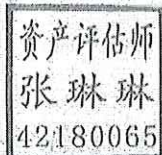 资产评估师
张琳琳
42180065